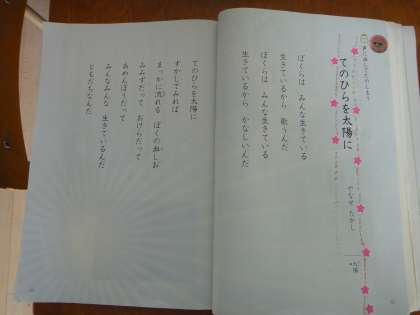 声に出してたのしもう
てのひらを太陽に
やなせ たかし
太陽
ぼくらは みんな生きている
生きているから 歌うんだ
ぼくらは みんな生きている
生きているから かなしいんだ
てのひらを太陽に
すかしてみれば
まっかに流れる ぼくの血しお
みみずだって おけらだって
あめんぼうだって
みんなみんな 生きているんだ
ともだちなんだ